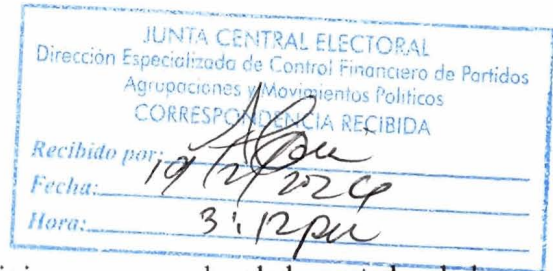 JUNTA CENTRAL ELECTORAL
Dirección Especializada de Control Financiero de Partidos
Agrupaciones y Movimientos Políticos
CORRESPONDENCIA RECIBIDA
Recibido por:
Fecha: 19/2/2024
Hora: 3:12 pm